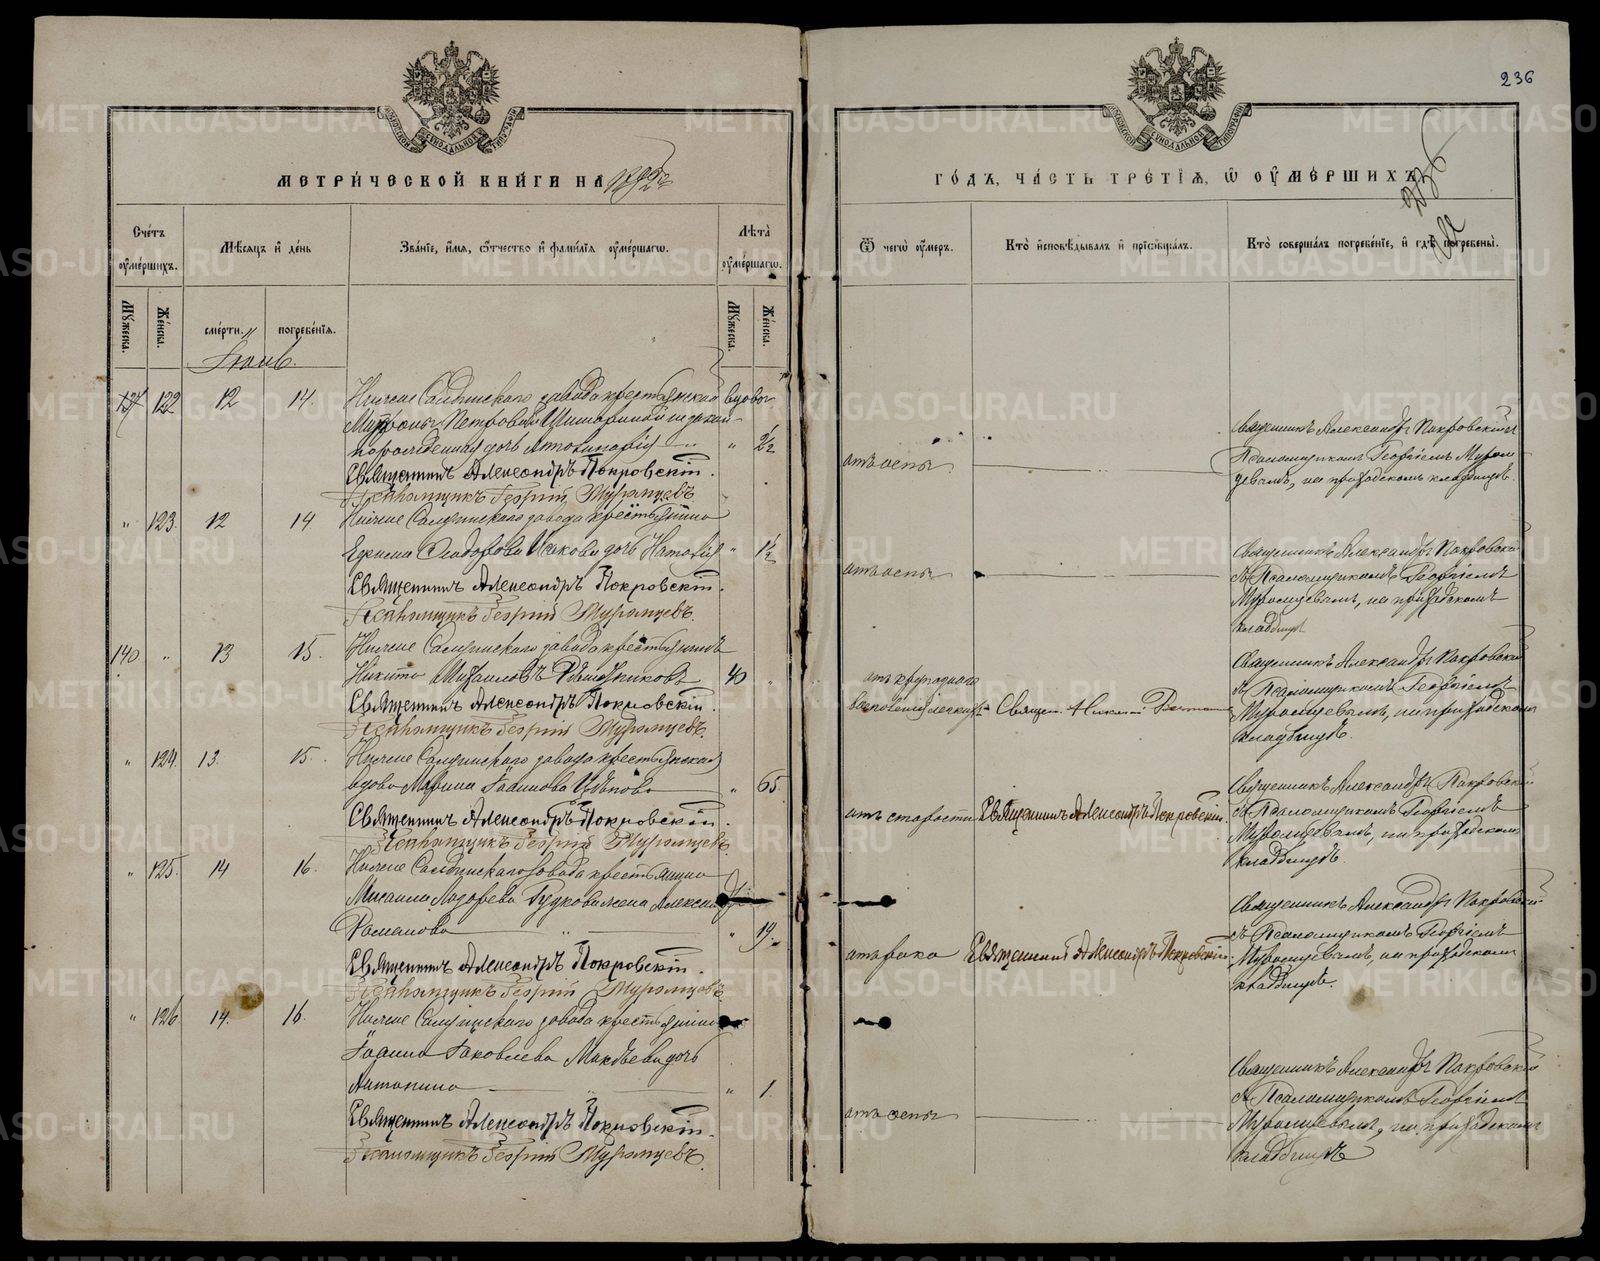 236
МЕТРИ́ЧЕСКОЙ КНИ́ГИ НА 1892
ГО́ДЪ, ЧА́СТЬ ТРЕ́ТІѦ, Ѡ ОУ҆МЕ́РШИХЪ
236
Сче́тъ оу҆ме́ршихъ.
Мѣ́сѧцъ и҆ де́нь
Зва́нїе, и҆́мѧ, ѻ҆́тчество и҆ фами́лїѧ оу҆ме́ршагѡ.
Лѣ́та оу҆ме́ршагѡ.
Ѿ чегѡ̀ оу҆́меръ.
Кто̀ и҆сповѣ́дывалъ и҆ прїѡбща́лъ.
Кто̀ соверша́лъ погребе́нїе, и҆ гдѣ̀ погребены̀.
Му́жеска. Же́нска. сме́рти. погребе́нїѧ. Му́жеска. Же́нска.
Іюль.
122 12 14 Нижне Салдинскаго завода крестьянской вдовы
Петровой незаконно-
рожденная дочь „ 2½
Священникъ Александръ Покровскій.
Псаломщикъ Георгій Муромцевъ
отъ оспы
Священникъ Александръ Покровскій съ
Псаломщикомъ Георгіемъ Муром
цевымъ, на приходскомъ кладбищѣ.
„ 123. 12 14 Нижне Салдинскаго завода крестьянина
Ефима Феодорова Исакова дочь Наталія „ 1½
Священникъ Александръ Покровскій.
Псаломщикъ Георгій Муромцевъ.
отъ оспы
Священникъ Александръ Покровскій
съ Псаломщикомъ Георгіемъ
Муромцевымъ, на приходскомъ
кладбищѣ
140 „ 13 15. Нижне Салдинскаго завода крестьянинъ
Никита Михаиловъ 40 „
Священникъ Александръ Покровскій.
Псаломщикъ Георгій Муромцевъ.
отъ крупознаго
воспаленія легкихъ Священ. Николай
Священникъ Александръ Покровскій
съ Псаломщикомъ Георгіемъ
Муромцевымъ, на приходскомъ
кладбищѣ.
„ 124. 13. 15. Нижне Салдинскаго завода крестьянская
вдова Марина Іоаннова „ 65
Священникъ Александръ Покровскій.
Псаломщикъ Георгій Муромцевъ.
отъ старости Священникъ Александръ Покровскій.
Священникъ Александръ Покровскій
съ Псаломщикомъ Георгіемъ
Муромцевымъ, на приходскомъ
кладбищѣ.
„ 125. 14 16. Нижне Салдинскаго завода крестьянина
Михаила Лазарева Гудкова жена Александра
Романова „ 19.
Священникъ Александръ Покровскій.
Псаломщикъ Георгій Муромцевъ
отъ рака Священникъ Александръ Покровскій.
Священникъ Александръ Покровскій
съ Псаломщикомъ Георгіемъ
Муромцевымъ, на приходскомъ
кладбищѣ.
„ 126 14. 16. Нижне Салдинскаго завода крестьянина
Іоанна Іаковлева дочь
Антонина „ 1.
Священникъ Александръ Покровскій.
Псаломщикъ Георгій Муромцевъ.
отъ оспы
Священникъ Александръ Покровскій
съ Псаломщикомъ Георгіемъ
Муромцевымъ, на приходскомъ
кладбищѣ